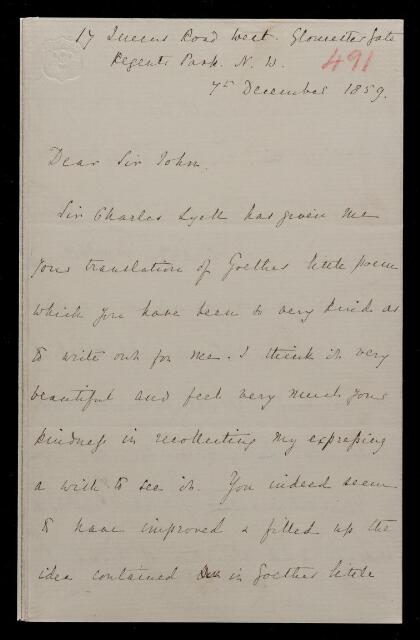 17 Queens Road West. Gloucester Gate
Regents Park. N. W.
491
7th December 1859.
Dear Sir John,
Sir Charles Lyell has given me
your translation of Goethes little poem
which you have been so very kind as
to write out for me. I think it very
beautiful and feel very much your
kindness in recollecting my expressing
a wish to see it. You indeed seem
to have improved & filled up the
idea contained in Goethes little